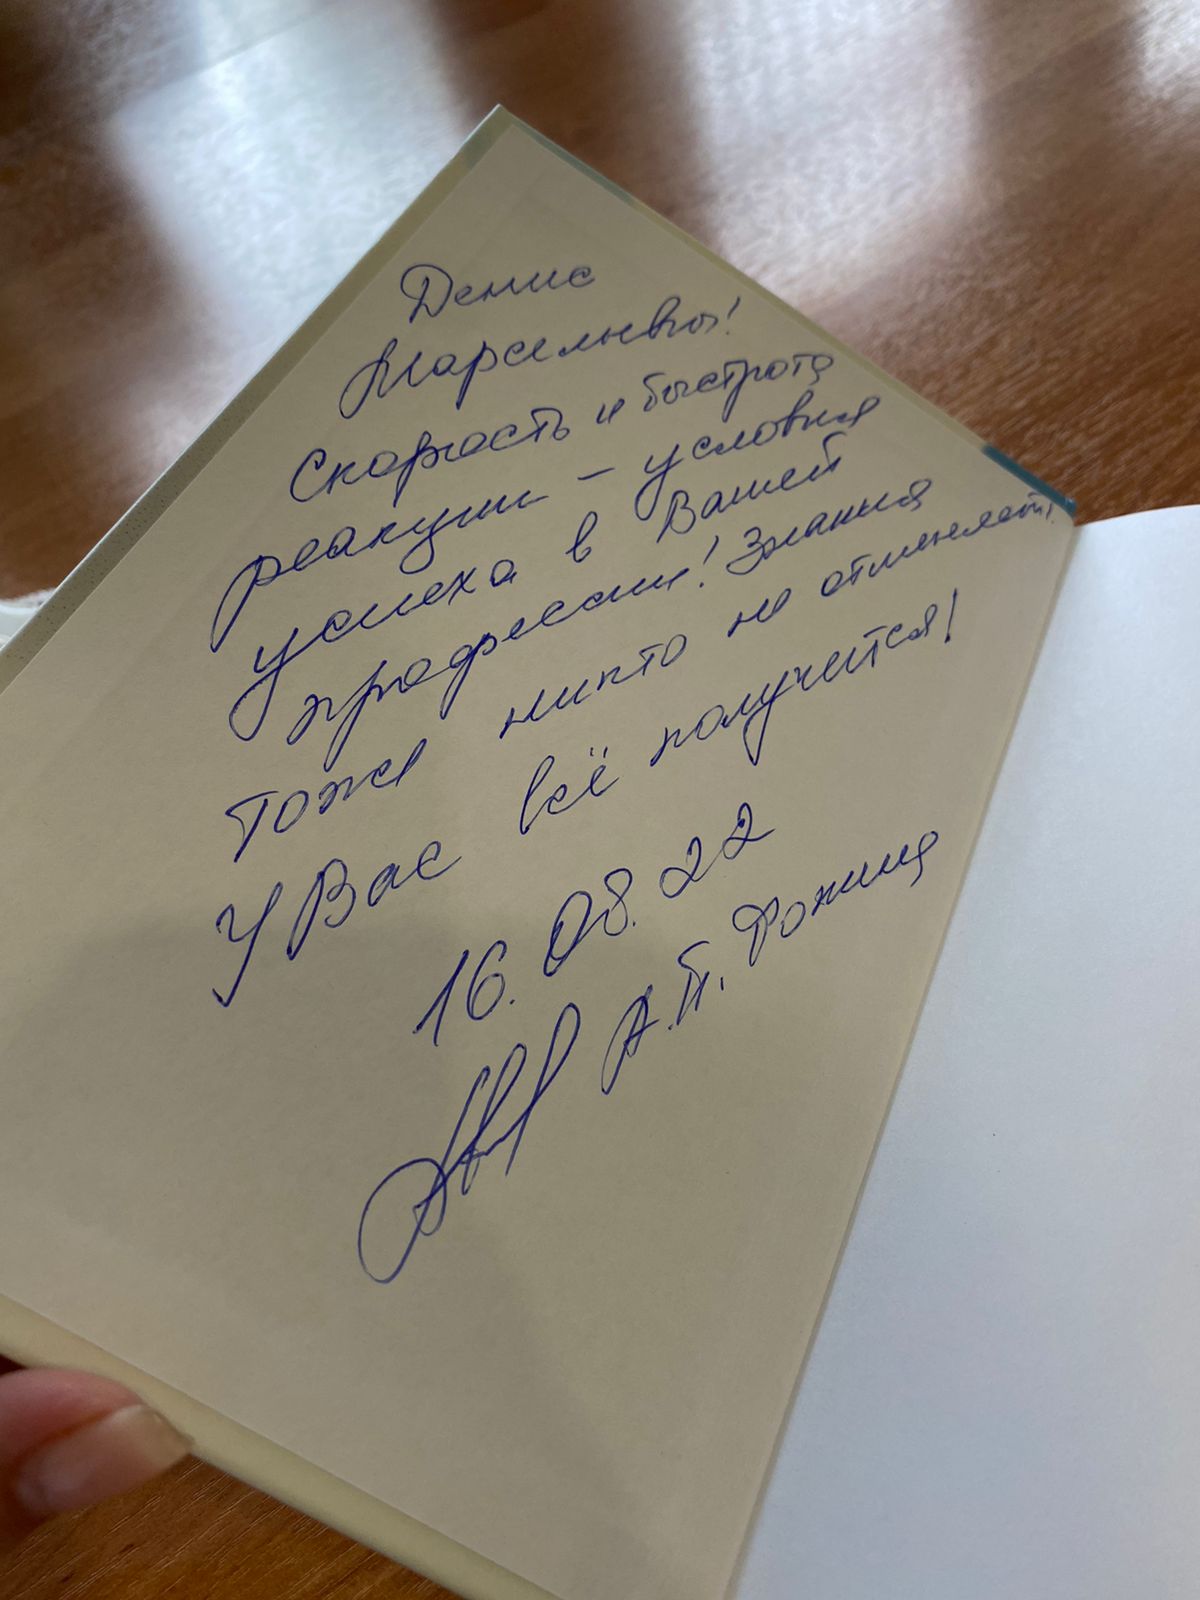 Денис
Марсельевич!
Скорость и быстрота
реакции – условия
успеха в Вашей
профессии! Знания
тоже никто не отменяет!
У Вас всё получится!
16.08.22
А.П. Фомина